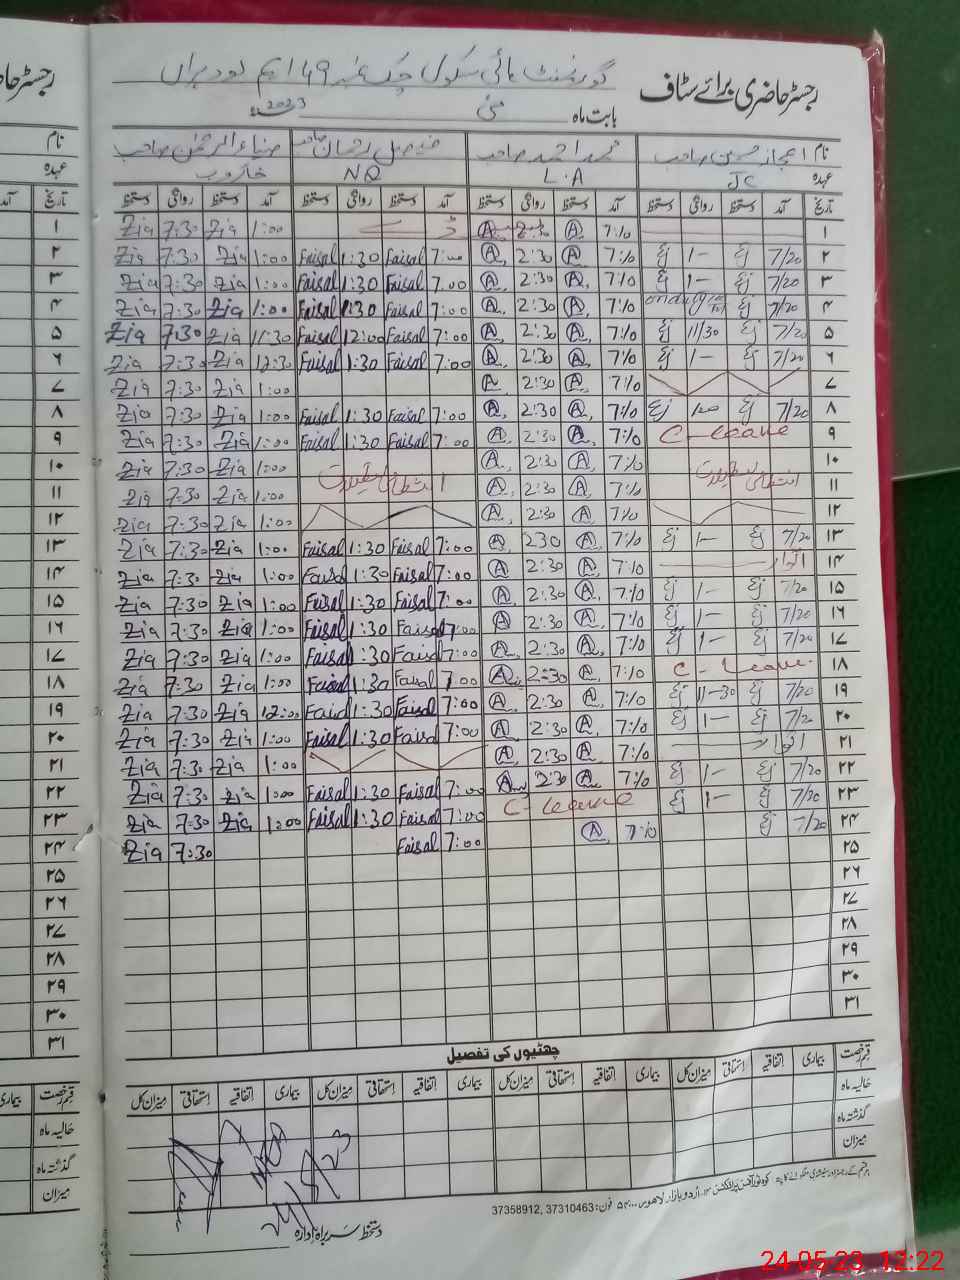 رجسٹر حاضری برائے سٹاف
گورنمنٹ ہائی سکول چک نمبر 49 ایم لودہراں
بابت ماہ مئی 2023
نام اعجاز حسین صاحب محمد احمد صاحب فیصل رحمان صاحب ضیاء الرحمٰن صاحب
عہدہ JC L.A NQ خاکروب
تاریخ آمد دستخط روانگی دستخط آمد دستخط روانگی دستخط آمد دستخط روانگی دستخط آمد دستخط روانگی دستخط
۱ 7:/0 A 2:30 A 1:00 Zia 7:30 Zia
۲ 7/20 Ej 1- Ej 7:/0 A 2:30 A 7:00 Faisal 1:30 Faisal 1:00 Zia 7:30 Zia
۳ 7/20 Ej 1- Ej 7:/0 A 2:30 A 7:00 Faisal 1:30 Faisal 1:00 Zia 7:30 Zia
۴ 7/20 Ej on duty 7:/0 A 2:30 A 7:00 Faisal 1:30 Faisal 1:00 Zia 7:30 Zia
۵ 7/20 Ej 11/30 Ej 7:/0 A 2:30 A 7:00 Faisal 12:00 Faisal 11:30 Zia 7:30 Zia
۶ 7/20 Ej 1- Ej 7:/0 A 2:30 A 7:00 Faisal 1:30 Faisal 12:30 Zia 7:30 Zia
۷ 7:/0 A 2:30 A 1:00 Zia 7:30 Zia
۸ 7/20 Ej 1:00 Ej 7:/0 A 2:30 A 7:00 Faisal 1:30 Faisal 1:00 Zia 7:30 Zia
۹ C-leave 7:/0 A 2:30 A 7:00 Faisal 1:30 Faisal 1:00 Zia 7:30 Zia
۱۰ انتظامی تعطیلات 7:/0 A 2:30 A انتظامی تعطیلات 1:00 Zia 7:30 Zia
۱۱ 7:/0 A 2:30 A 1:00 Zia 7:30 Zia
۱۲ 7:/0 A 2:30 A 1:00 Zia 7:30 Zia
۱۳ 7/20 Ej 1- Ej 7:/0 A 230 A 7:00 Faisal 1:30 Faisal 1:00 Zia 7:30 Zia
۱۴ اتوار 7:/0 A 2:30 A 7:00 Faisal 1:30 Faisal 1:00 Zia 7:30 Zia
۱۵ 7/20 Ej 1- Ej 7:/0 A 2:30 A 7:00 Faisal 1:30 Faisal 1:00 Zia 7:30 Zia
۱۶ 7/20 Ej 1- Ej 7:/0 A 2:30 A 7:00 Faisal 1:30 Faisal 1:00 Zia 7:30 Zia
۱۷ 7/20 Ej 1- Ej 7:/0 A 2:30 A 7:00 Faisal 1:30 Faisal 1:00 Zia 7:30 Zia
۱۸ C-Leave 7:/0 A 2:30 A 7:00 Faisal 1:30 Faisal 1:00 Zia 7:30 Zia
۱۹ 7/20 Ej 11-30 Ej 7:/0 A 2:30 A 7:00 Faisal 1:30 Faisal 12:00 Zia 7:30 Zia
۲۰ 7/20 Ej 1- Ej 7:/0 A 2:30 A 7:00 Faisal 1:30 Faisal 1:00 Zia 7:30 Zia
۲۱ اتوار 7:/0 A 2:30 A 1:00 Zia 7:30 Zia
۲۲ 7/20 Ej 1- Ej 7:/0 A 2:30 A 7:00 Faisal 1:30 Faisal 1:00 Zia 7:30 Zia
۲۳ 7/20 Ej 1- Ej C-leave 7:00 Faisal 1:30 Faisal 1:00 Zia 7:30 Zia
۲۴ 7/20 Ej 7:/0 A 7:00 Faisal 7:30 Zia
۲۵
۲۶
۲۷
۲۸
۲۹
۳۰
۳۱
چھٹیوں کی تفصیل
قسم رخصت بیماری اتفاقیہ استحقاقی میزان کل بیماری اتفاقیہ استحقاقی میزان کل بیماری اتفاقیہ استحقاقی میزان کل بیماری اتفاقیہ استحقاقی میزان کل
حالیہ ماہ
گذشتہ ماہ
میزان
دستخط سربراہ ادارہ
اردو بازار لاہور فون: 37310463, 37358912
24-05-23 12:22